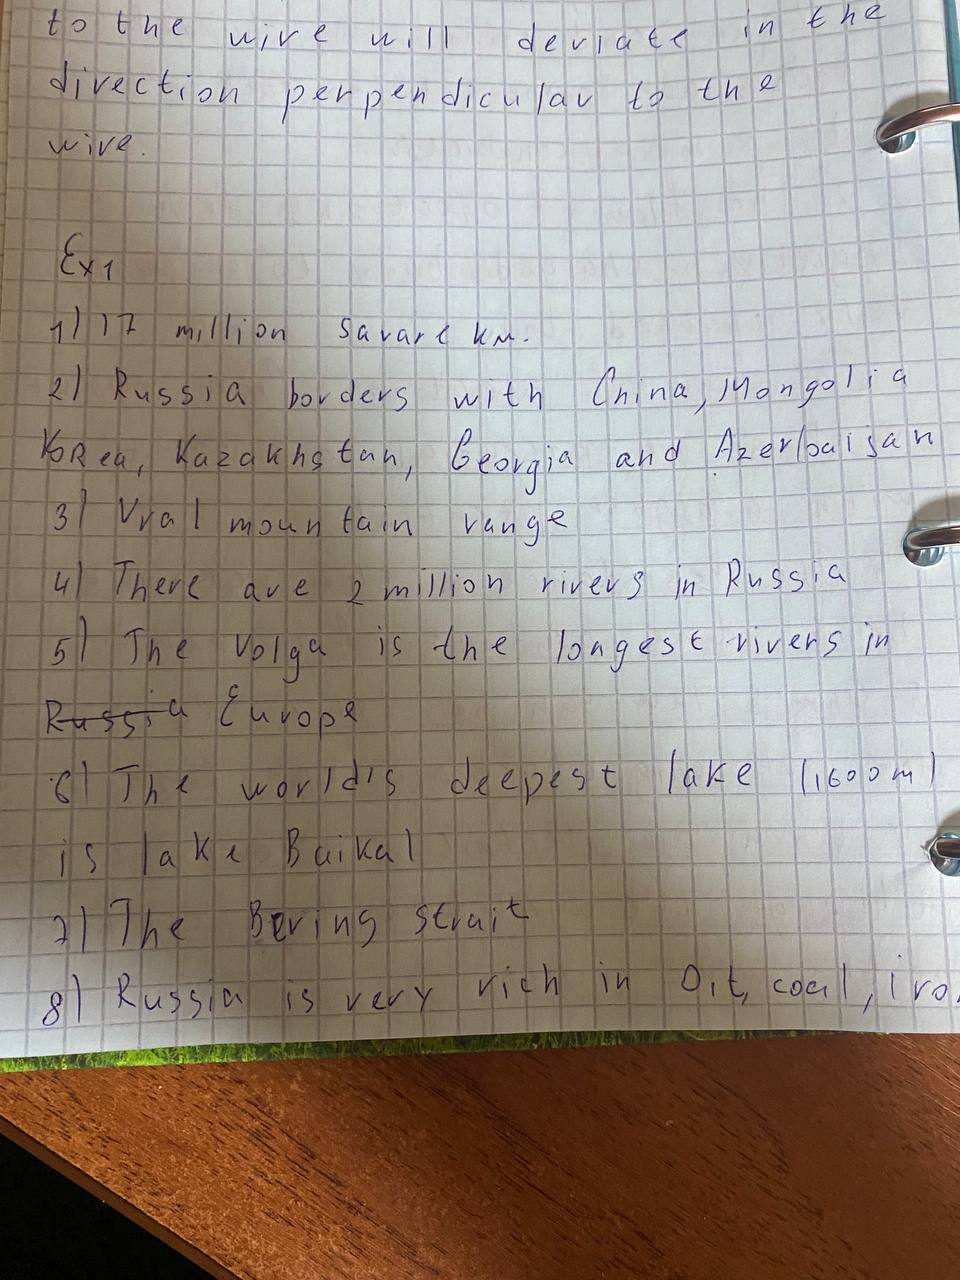 to the wire will deviate in the
direction perpendicular to the
wire.
Ex1
1) 17 million savare км.
2) Russia borders with China, Mongolia
Korea, Kazakhstan, Georgia and Azerbaijan
3) Ural mountain range
4) There are 2 million rivers in Russia
5) The Volga is the longest rivers in
Russia Europe
6) The world's deepest lake (1600m)
is lake Baikal
7) The Bering strait
8) Russia is very rich in Oit, coal, iro